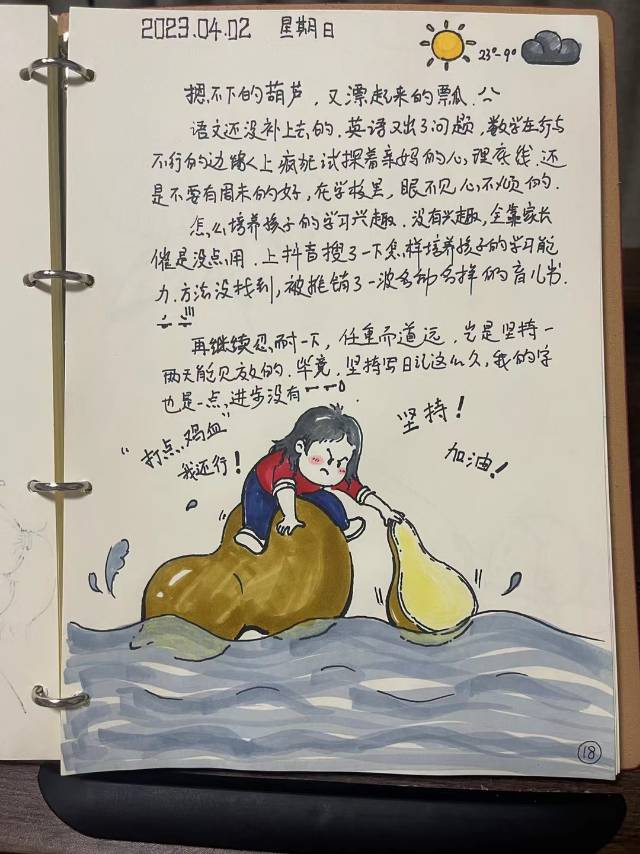 2023.04.02 星期日
23°-9°
摁不下的葫芦，又漂起来的瓢 ^^
语文还没补上去的，英语又出了问题，数学在行与
不行的边缘上疯狂试探着亲妈的心理底线，还
是不要有周末的好，在学校里，眼不见心不烦的．
怎么培养孩子的学习兴趣．没有兴趣，全靠家长
催是没点用．上抖音搜了一下怎样培养孩子的学习能
力．方法没找到，被推销了一波各种各样的育儿书．
再继续忍耐一下，任重而道远，岂是坚持一
两天能见效的．毕竟，坚持写日记这么久，我的字
也是一点进步没有
"打点鸡血"
我还行！
坚持！
加油！
18